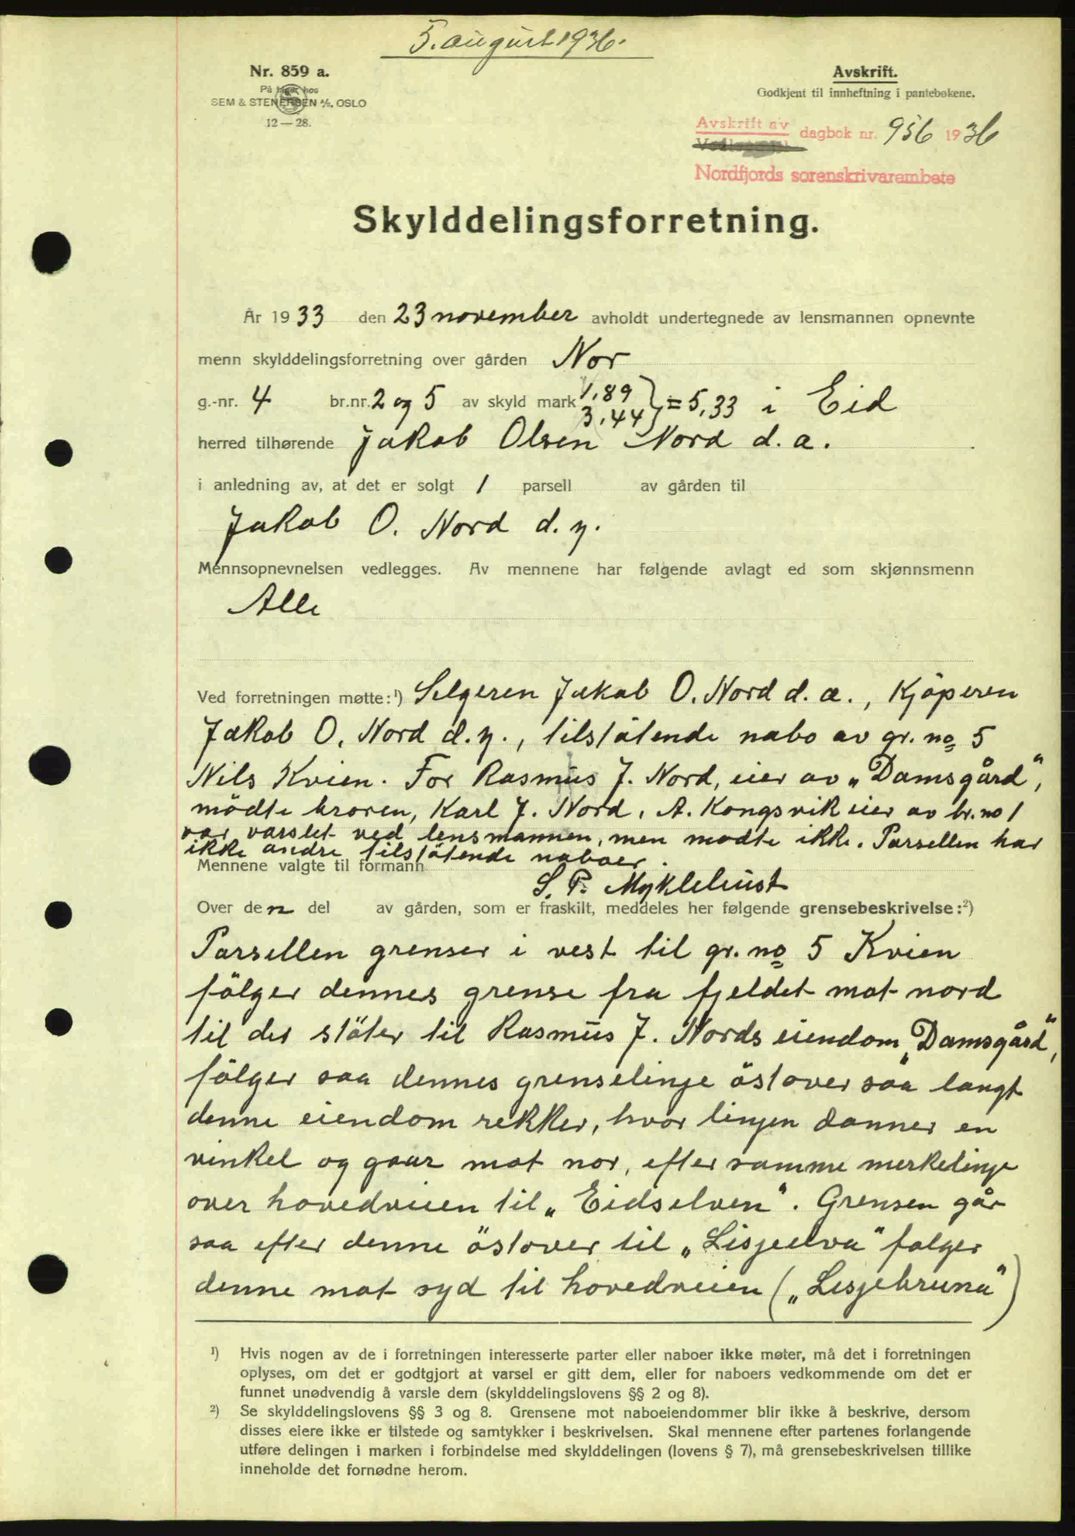 5. august 1936.
Nr. 859 a.
På lager hos
SEM & STENERSEN A/S, OSLO
12 — 28.
Avskrift.
Godkjent til innheftning i pantebøkene.
Avskrift av dagbok nr. 956 1936
Nordfjords sorenskrivarembete
Skylddelingsforretning.
År 1933 den 23 november avholdt undertegnede av lensmannen opnevnte
menn skylddelingsforretning over gården Nor
g.-nr. 4 br.nr. 2 og 5 av skyld mark 1,89 3,44 } = 5,33 i Eid
herred tilhørende Jakob Olsen Nord d. a.
i anledning av, at det er solgt 1 parsell av gården til
Jakob O. Nord d. y.
Mennsopnevnelsen vedlegges. Av mennene har følgende avlagt ed som skjønnsmenn
Alle
Ved forretningen møtte:¹) Selgeren Jakob O. Nord d. a., Kjöperen
Jakob O. Nord d. y., tilstötende nabo av gr. no 5
Nils Kvien. For Rasmus J. Nord, eier av „Damsgård",
mödte broren, Karl J. Nord. A. Kongsvik eier av br. no 1
var varslet ved lensmannen, men mødte ikke. Parsellen har
ikke andre tilstötende naboer.
Mennene valgte til formann
S. P. Myklebust
Over den del av gården, som er fraskilt, meddeles her følgende grensebeskrivelse:²)
Parsellen grenser i vest til gr. no 5 Kvien
fölger dennes grense fra fjeldet mot nord
til det stöter til Rasmus J. Nords eiendom „Damsgård",
fölger saa dennes grenselinje östover saa langt
denne eiendom rekker, hvor linjen danner en
vinkel og gaar mot nor, efter samme merkelinje
over hovedveien til „Eidselven". Grensen går
saa efter denne östover til „Lisjeelva" følger
denne mot syd til hovedveien („Lisjebruna")
¹) Hvis nogen av de i forretningen interesserte parter eller naboer ikke møter, må det i forretningen
oplyses, om det er godtgjort at varsel er gitt dem, eller for naboers vedkommende om det er
funnet unødvendig å varsle dem (skylddelingslovens §§ 2 og 8).
²) Se skylddelingslovens §§ 3 og 8. Grensene mot naboeiendommer blir ikke å beskrive, dersom
disses eiere ikke er tilstede og samtykker i beskrivelsen. Skal mennene efter partenes forlangende
utføre delingen i marken i forbindelse med skylddelingen (lovens § 7), må grensebeskrivelsen tillike
inneholde det fornødne herom.